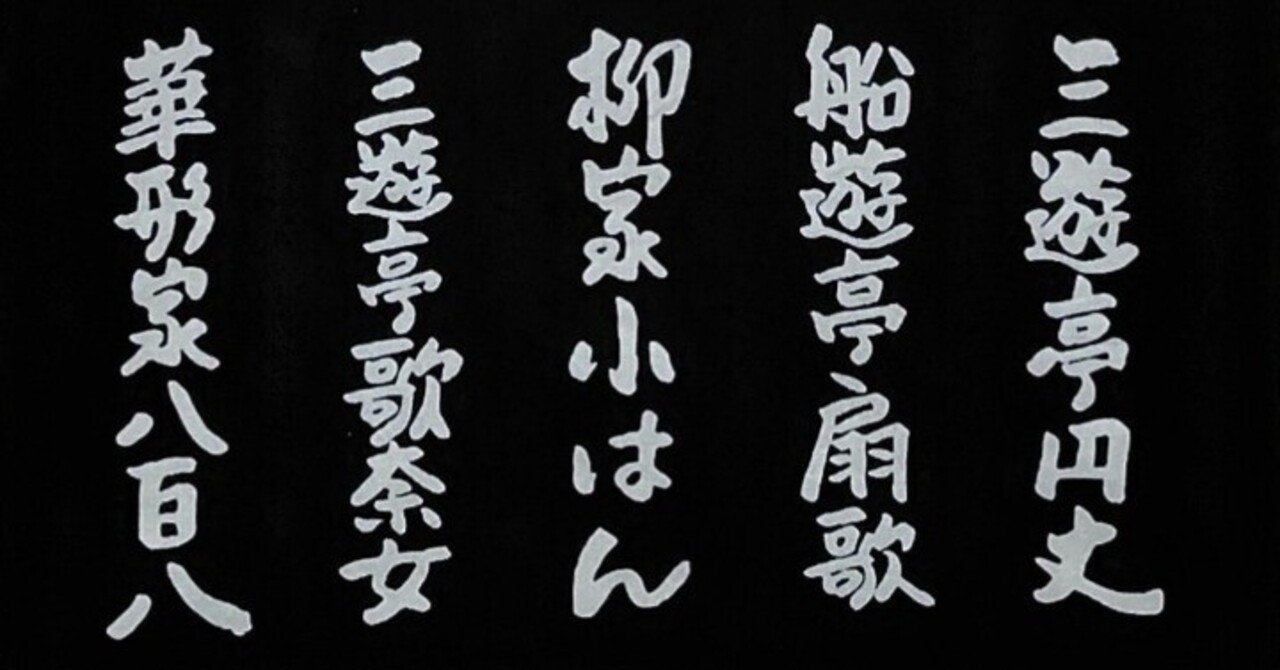 三遊亭円丈
船遊亭扇歌
柳家小はん
三遊亭歌奈女
華形家八百八